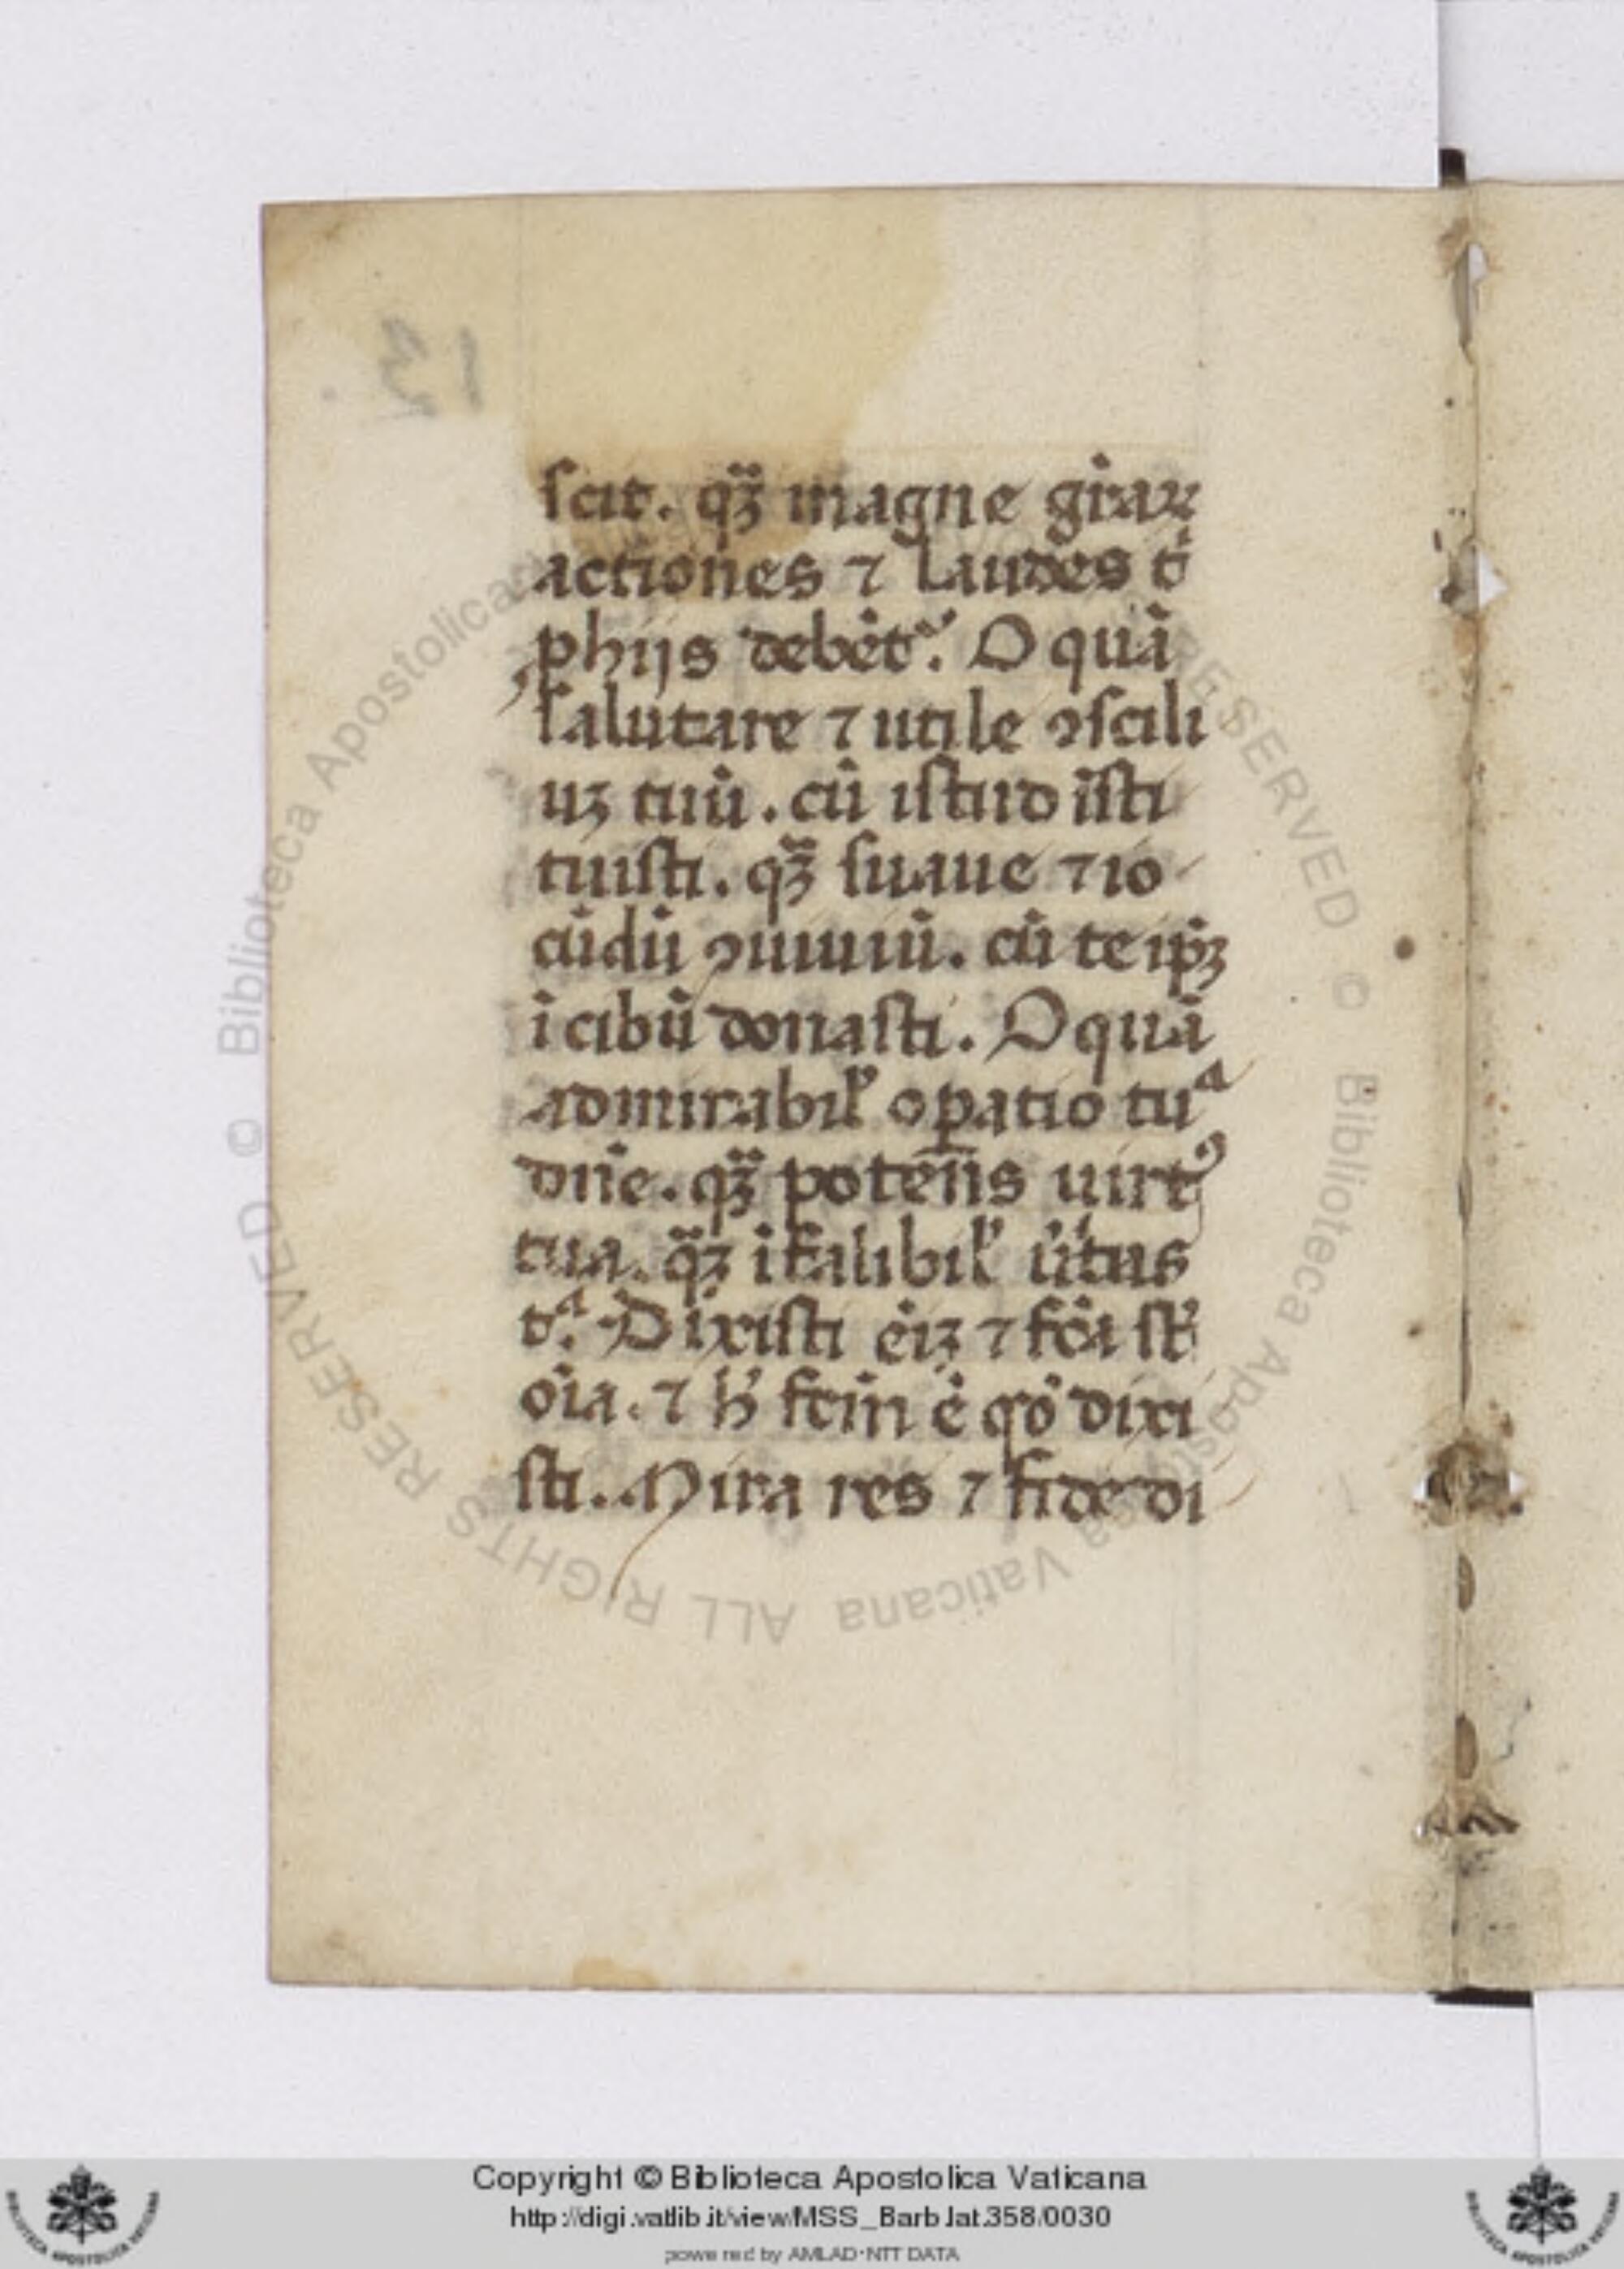 scit. qꝫ̃ magne gr̃aꝝ
actiones ⁊ laudes t̃
ꝓ hijs debẽt᷑. O quã
salutare ⁊ utile ꝯscili
uꝫ tuũ. cũ istud ĩsti
tuisti. qꝫ̃ suaue ⁊ io
cũdũ ꝯuiuiũ. cũ te ip̃ꝫ
ĩ cibũ donasti. O quã
admirabil̕ oꝑatio tuᵃ
dñe. qꝫ̃ potens uirtꝰ
tua. qꝫ̃ ĩfalibil̕ ũitas
tᵃ. Dixisti eĩꝫ ⁊ fc̃a st̃
oĩa. ⁊ h̕ fctm̃ ẽ qõ dixi
sti. Mira res ⁊ fide di
13.
© Biblioteca Apostolica Vaticana ALL RIGHTS RESERVED
© Biblioteca Apostolica Vaticana ALL RIGHTS RESERVED
Copyright © Biblioteca Apostolica Vaticana
http://digi.vatlib.it/view/MSS_Barb.lat.358/0030
powered by AMLAD·NTT DATA